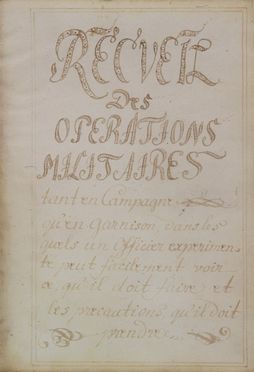 RECVEIL
DES
OPERATIONS
MILITAIRES
tant en Campagne
qu'en Garnison dans les
quels un Officier experimen
té peut facilement voir
ce qu'il doit faire et
les precautions qu'il doit
prendre